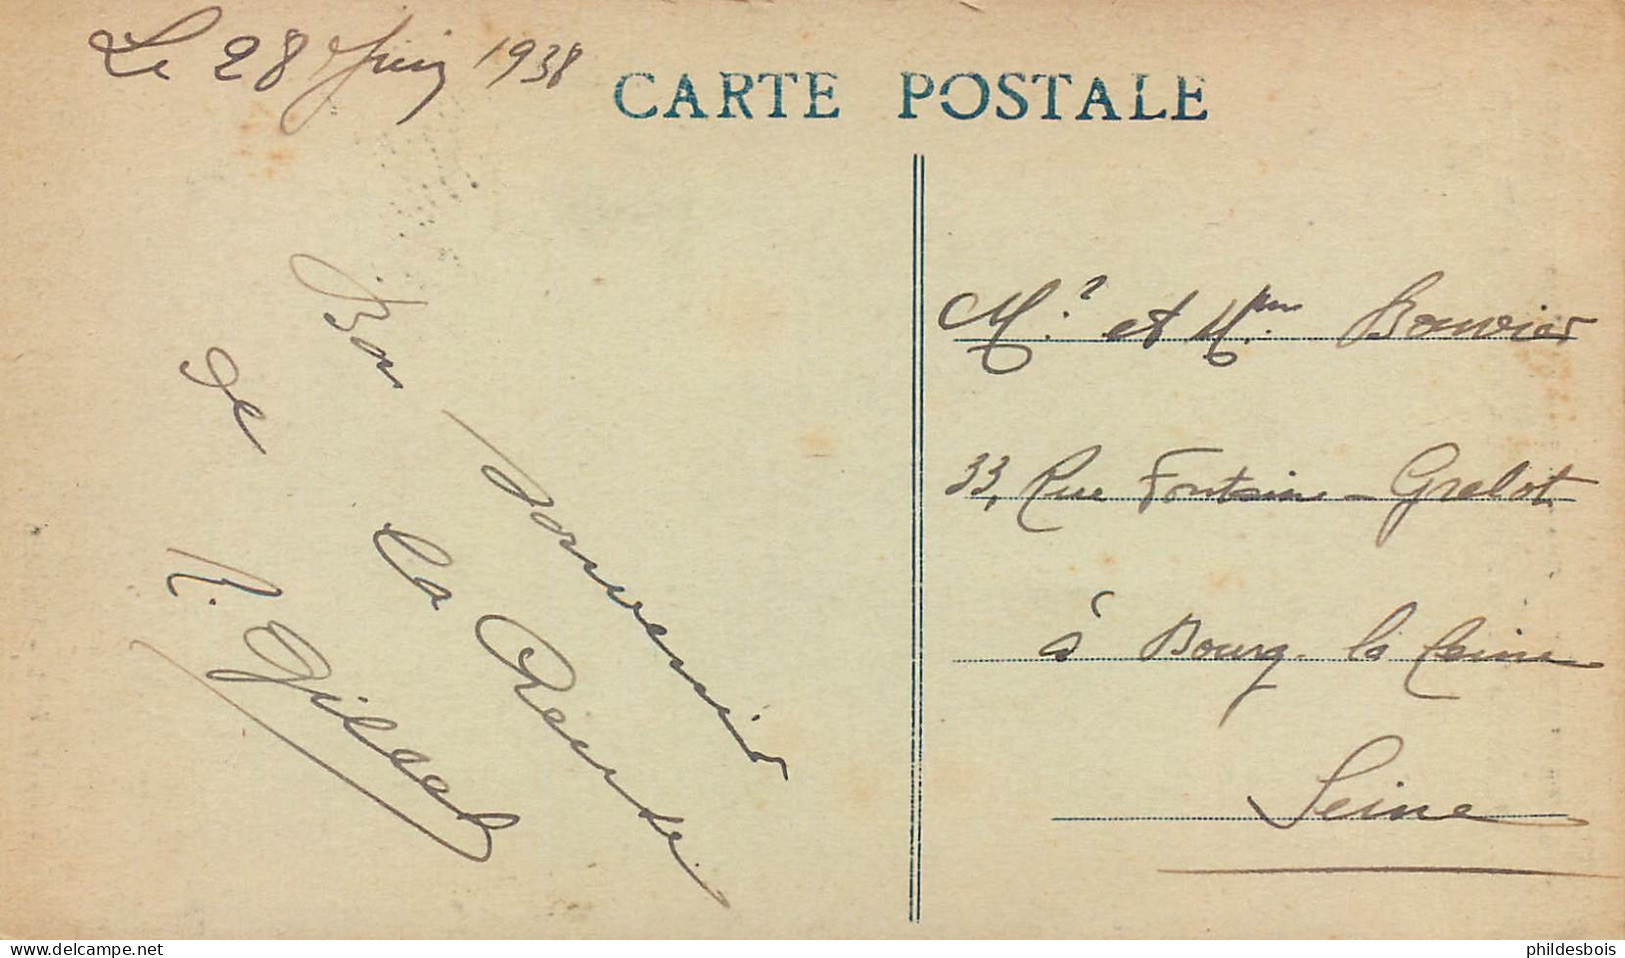 Le 28 Juin 1938
CARTE POSTALE
Bon souvenir
de la
R. Gilbert
Mr. et Mme. Bouvier
33, Rue Fontaine - Grelot
à Bourg. la Reine
Seine
www.delcampe.net
phildesbois